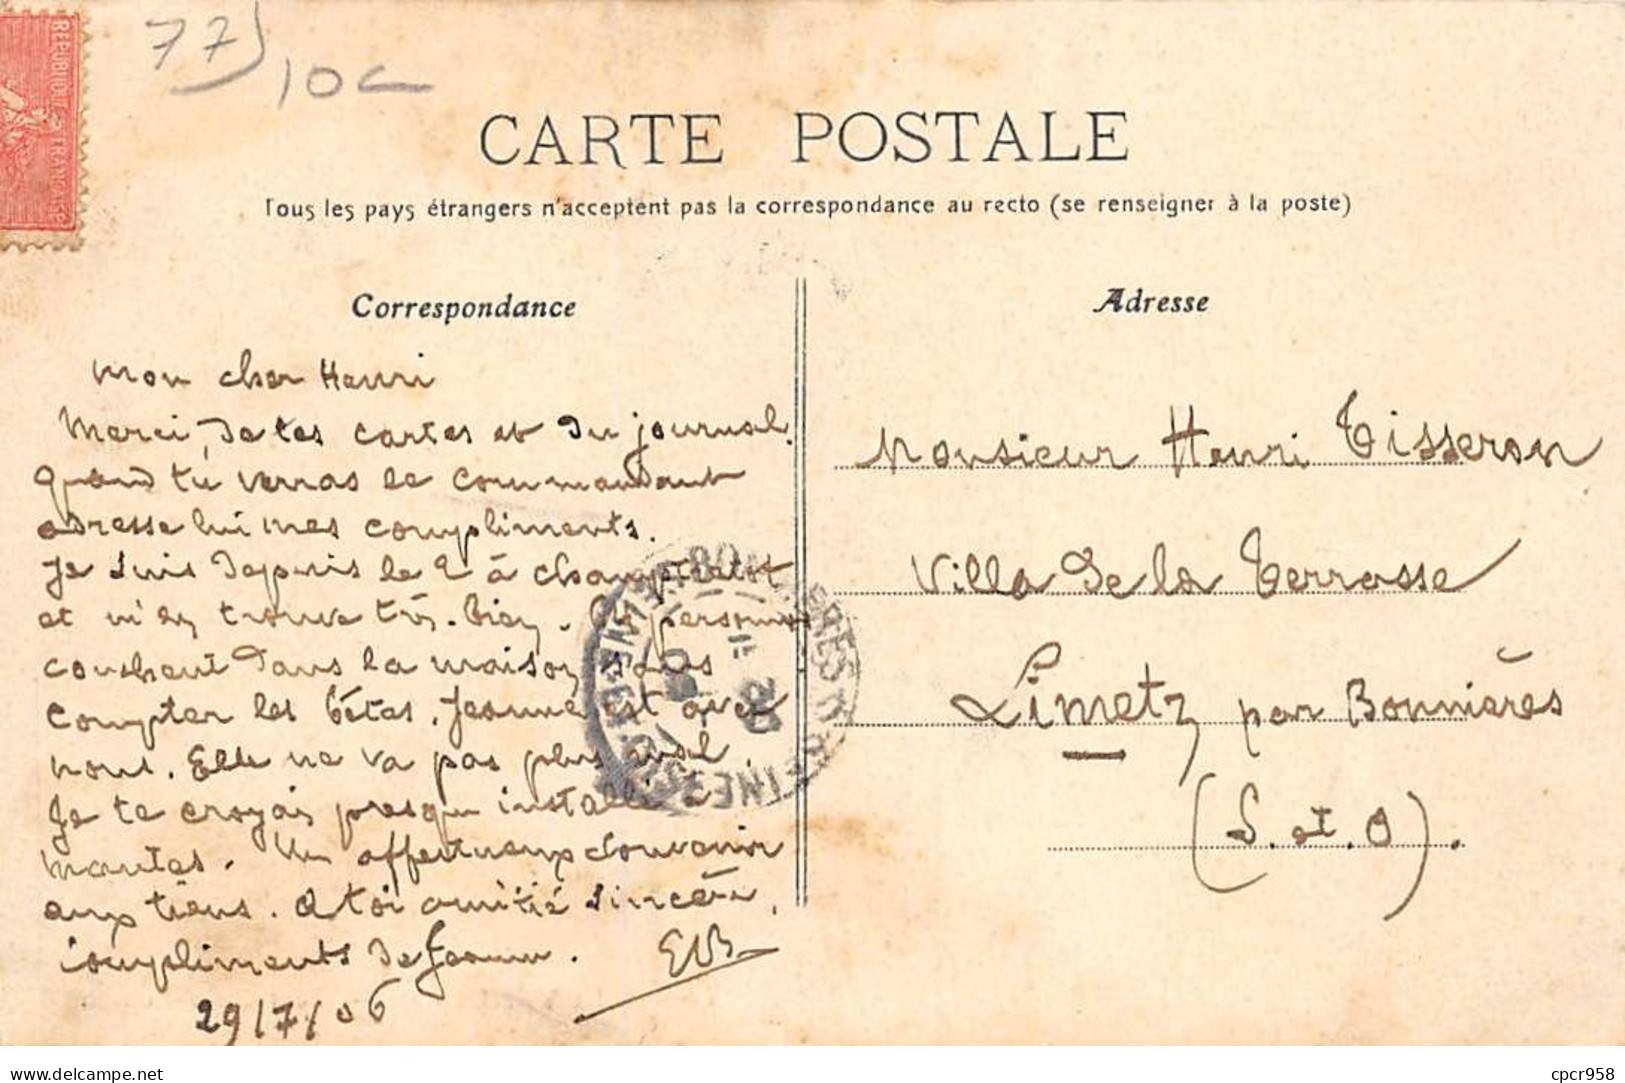 77
10c
RÉPUBLIQUE FRANÇAISE
CARTE POSTALE
Tous les pays étrangers n'acceptent pas la correspondance au recto (se renseigner à la poste)
Correspondance
mon cher Henri
Merci, de tes cartes et du journal.
Quand tu verras le commandant
adresse lui mes compliments.
Je suis depuis le 2 à
et m'en trouve très-bien. personnes
couchent dans la maison sans
compter les bêtes. Jeanne est avec
nous. Elle ne va pas plus mal.
Je te croyais presque installé à
Mantes. Un affectueux souvenir
aux tiens. A toi amitié sincère,
compliments de Jeanne.
29/7/06
Adresse
Monsieur Henri Tisseron
Villa de la Terrasse
Limetz par Bonnières
(S. et. O).
www.delcampe.net
cpcr958